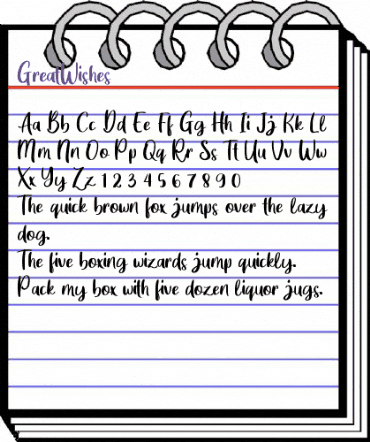 GreatWishes
Aa Bb Cc Dd Ee Ff Gg Hh Ii Jj Kk Ll
Mm Nn Oo Pp Qq Rr Ss Tt Uu Vv Ww
Xx Yy Zz 1 2 3 4 5 6 7 8 9 0
The quick brown fox jumps over the lazy
dog.
The five boxing wizards jump quickly.
Pack my box with five dozen liquor jugs.